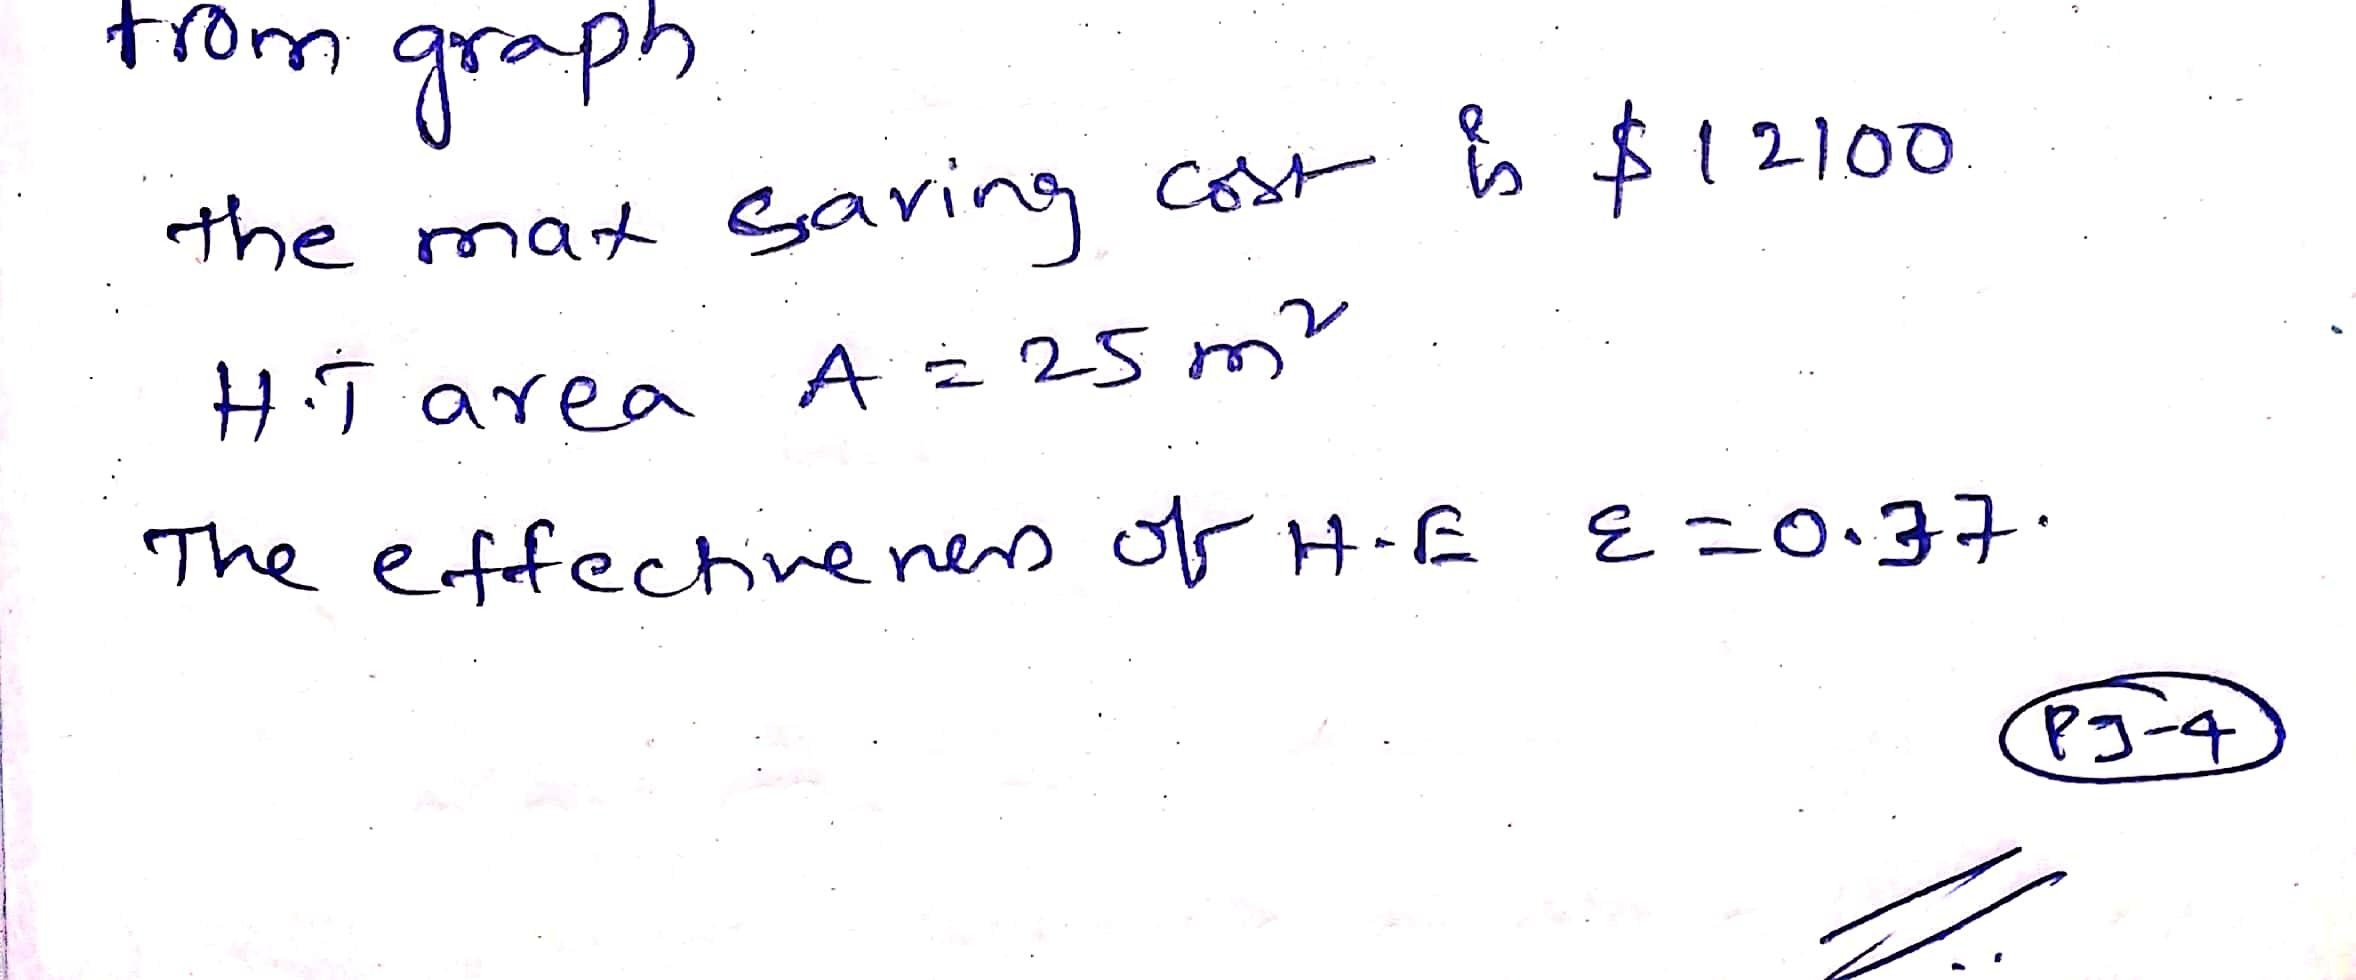 from graph
the max saving cost is $12100.
H.T area A = 25 m²
The effectiveness of H.E ε = 0.37.
Pg-4